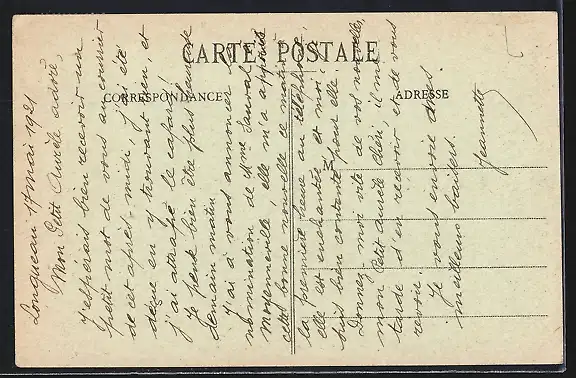 CARTE POSTALE
CORRESPONDANCE
ADRESSE
Longueau 17 mai 1921
Mon Petit Aurèle adoré,
J'espérais bien recevoir un
petit mot de vous au courrier
de cet après-midi, j'ai été
déçue en n'y trouvant rien, et
j'ai attrapé le cafard.
Je peux bien être plus heureuse
demain matin
J'ai à vous annoncer la
nomination de Mme Sauval à
Moyenneville, elle m'a appris
cette bonne nouvelle ce matin
la première heure au téléphone,
elle est enchantée et moi
suis bien contente pour elle.
Donnez moi vite de vos nouvelles,
mon Petit Aurèle chéri, il me
tarde d'en recevoir et de vous
revoir.
Je vous envoie mes
meilleurs baisers.
Jeannette